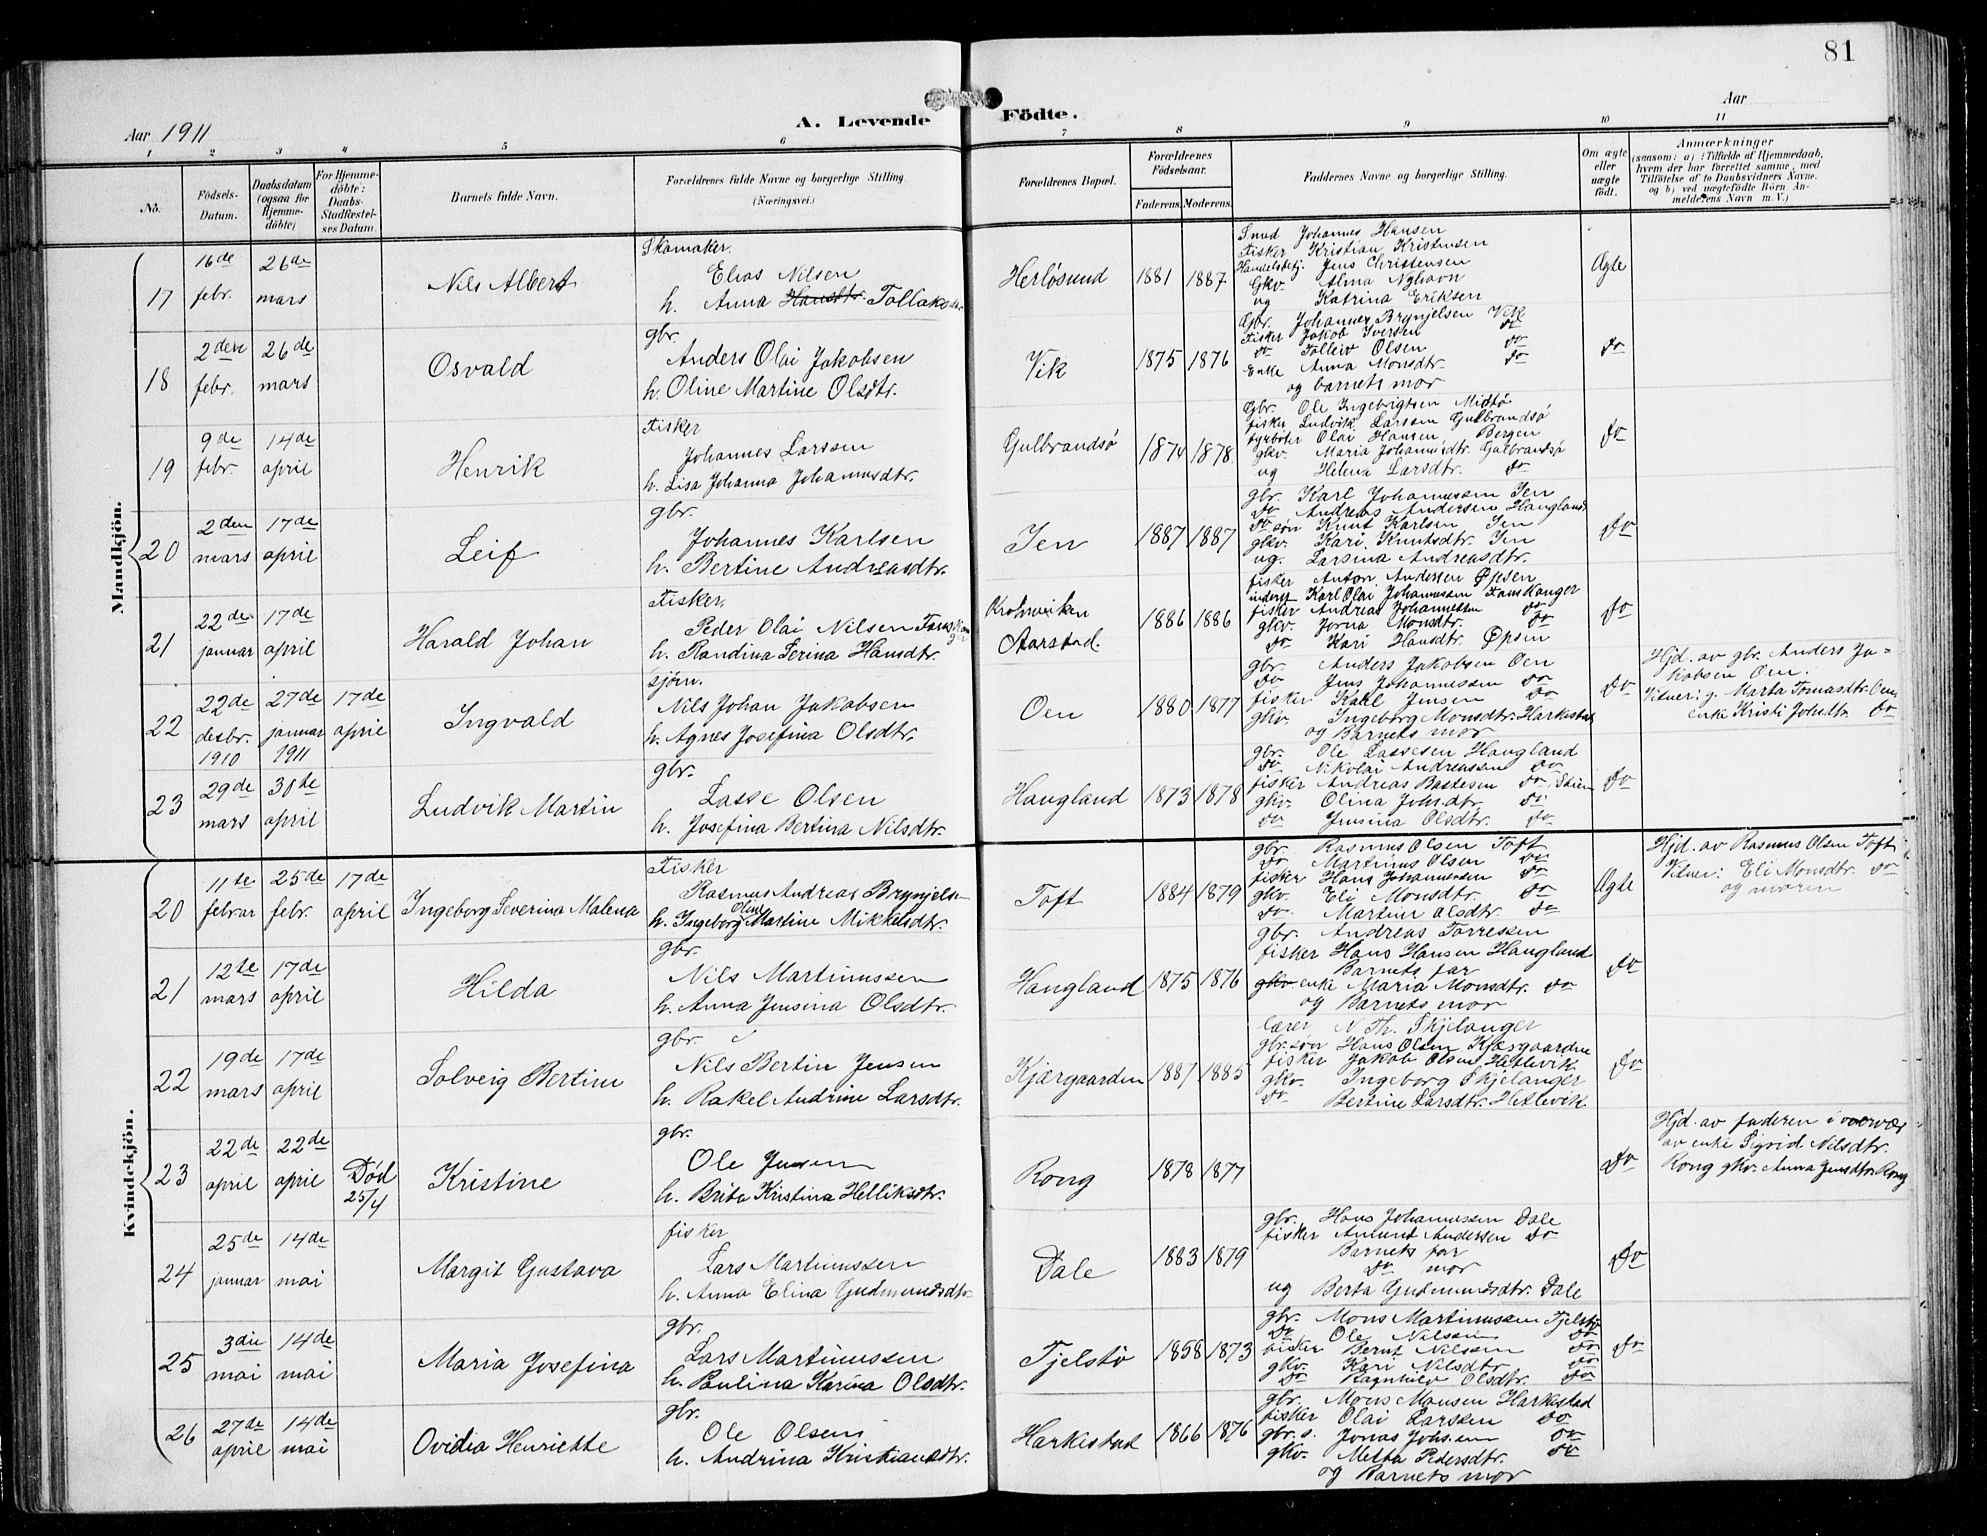 81
Aar 1911
A. Levende Födte.
Aar
1 2 3 4 5 6 7 8 9 10 11
No.
Födsels-Datum.
Daabsdatum (ogsaa for Hjemmedöbte)
For Hjemmedöbte: Daabs-Stadfæstelses Datum.
Barnets fulde Navn.
Forældrenes fulde Navne og borgerlige Stilling. (Næringsvei.)
Forældrenes Bopæl.
Forældrenes Födselsaar.
Faderens. Moderens.
Faddernes Navne og borgerlige Stilling.
Om ægte eller uægte födt.
Anmærkninger
(saasom: a) i Tilfælde af Hjemmedaab,
hvem der har forrettet samme, med
Tilföielse af to Daabsvidners Navne,
og b) ved uægtefödte Börn An-
melderens Navn m. V.)
Mandkjön.
17
16de febr.
26de mars
Nils Albert
Skomaker.
Elias Nilsen
h. Anna Hansdtr. Tollaks
Herløsund
1881 1887
Smed Johannes Hansen
Fisker Kristian Kristensen
Handelsbetj. Jens Christensen
Gkv. Alma Nyhavn
og Katrina Eriksen
Ægte
18
2den febr.
26de mars
Osvald
gbr.
Anders Olai Jakobsen
h. Oline Martine Olsdtr.
Vik
1875 1876
Gbr. Johannes Brynjelsen Vik
Fisker Jakob Iversen do
do Tolleiv Olsen do
Enke Anna Monsdtr. do
og barnets mor
do
19
9de febr.
14de april
Henrik
Fisker
Johannes Larssen
h. Lisa Johanna Johannesdtr.
Gulbrandsø
1874 1878
Gbr. Ole Ingebrigtsen Midtø
fisker Ludvik Larssen Gulbrandsø
fyrbøter Olai Hansen Bergen
gkv. Maria Johannesdtr. Gulbrandsø
og Helena Larsdtr. do
do
20
2den mars
17de april
Leif
gbr.
Johannes Karlsen
h. Bertine Andreasdtr.
Jen
1887 1887
gbr. Karl Johannessen Jen
do Andreas Andersen Haugland
do søn Knut Karlsen Jen
gkv. Kari Knutsdtr. Jen
og. Larsina Andreasdtr.
do
21
22de januar
17de april
Harald Johan
Fisker.
Peder Olai Nilsen
h. Randina Serina Hansdtr.
Krohnviken
Aarstad.
1886 1886
fisker Anton Andersen Øpsen
inderst Karl Olai Johannessen Fauskanger
fisker Andreas Johannessen do
gkv. Jorna Monsdtr. do
do Kari Hansdtr. Øpsen
do
22
22de desbr. 1910
27de januar 1911
17de april
Ingvald
sjøm.
Nils Johan Jakobsen
h. Agnes Josefina Olsdtr.
Oen
1880 1877
gbr. Anders Jakobsen Oen
do Jens Johannessen do
fisker Karl Jensen do
gkv. Ingeborg Monsdtr. Harkestad
og Barnets mor
do
Hjd. av gbr. Anders Ja-
kobsen Oen.
Vitner: g. Marta Tomasdtr. Oen,
enke Kristi Johsdtr. do
23
29de mars
30te april
Ludvik Martin
gbr.
Lasse Olsen
h. Josefina Bertina Nilsdtr.
Haugland
1873 1878
gbr. Ole Lassesen Haugland
do Nikolai Andreassen do
fisker Andreas Bastesen do
gkv. Olina Johsdtr. do
do Jensina Olsdtr. do
do
Kvindekjön.
20
11te februar
25de febr.
17de april
Ingeborg Severina Malena
Fisker
Rasmus Andreas Brynjelsen
h. Ingeborg Oline Martine Mikkelsdtr.
Toft
1884 1879
gbr. Rasmus Olsen Toft
do Martinus Olsen do
fisker Hans Johannessen do
gkv. Eli Monsdtr. do
do. Martine Olsdtr. do
Ægte
Hjd. av Rasmus Olsen Toft
Vitner: Eli Monsdtr. do
og moren
21
12te mars
17de april
Hilda
gbr.
Nils Martinussen
h. Anna Jensina Olsdtr.
Haugland
1875 1876
gbr. Andreas Torressen
fisker Hans Hansen Haugland
Barnets far
gkv enke Maria Monsdtr. do
og Barnets mor
do
22
19de mars
17de april
Solveig Bertine
gbr.
Nils Bertin Jensen
h. Rakel Andrine Larsdtr.
Kjærgaarden
1887 1885
lærer N. Th. Skjelanger
gbr. søn Hans Olsen Kjærgaarden
fisker Jakob Olsen Hetlevik
gkv. Ingeborg Skjelanger
do Bertine Larsdtr. Hetlevik
do
23
22de april
22de april
Død 25/4
Kristine
gbr.
Ole Jensen
h. Brita Kristina Helliksdtr.
Rong
1878 1877
do
Hjd. av faderen i overvær
av enke Sigrid Nilsdtr.
Rong gkv. Anna Jensdtr. Rong
24
25de januar
14de mai
Margit Gustava
fisker
Lars Martinussen
h. Anna Elina Gudmundsdtr.
Dale
1883 1879
gbr. Hans Johannessen Dale
fisker Amund Andersen do
Barnets far
do mor
og Berta Gudmundsdtr. Dale
do
25
3die mai
14de mai
Maria Josefina
gbr.
Lars Martinussen
h. Paulina Karina Olsdtr.
Tjelstø
1858 1873
gbr. Mons Martinussen Tjelstø
do Ole Nilsen do
fisker Bernt Nilssen do
gkv. Kari Nilsdtr do
do Ragnhild Olsdtr. do
do
26
27de april
14de mai
Ovidia Henriette
gbr.
Ole Olsen
h. Andrina Kristiansdtr.
Harkestad
1866 1876
gbr. Mons Monsen Harkestad
fisker Olai Larssen do
gbr. s. Jonas Johsen do
gkv. Metta Pedersdtr. do
og Barnets mor